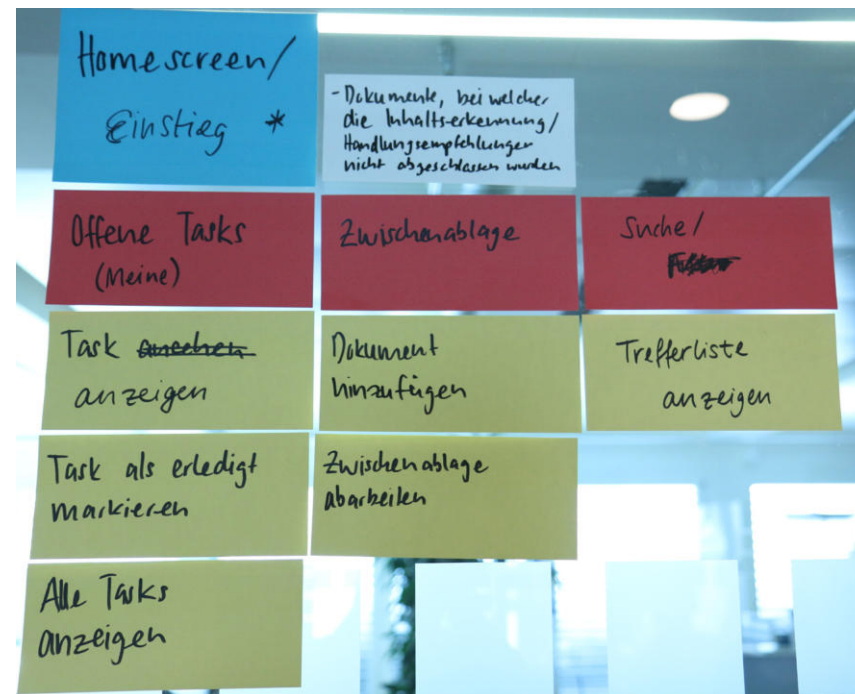 Homescreen/
Einstieg *
- Dokumente, bei welcher
die Inhaltserkennung/
Handlungsempfehlungen
nicht abgeschlossen wurden
Offene Tasks
(Meine)
Zwischenablage
Suche/
Task ansehen
anzeigen
Dokument
hinzufügen
Trefferliste
anzeigen
Task als erledigt
markieren
Zwischenablage
abarbeiten
Alle Tasks
anzeigen